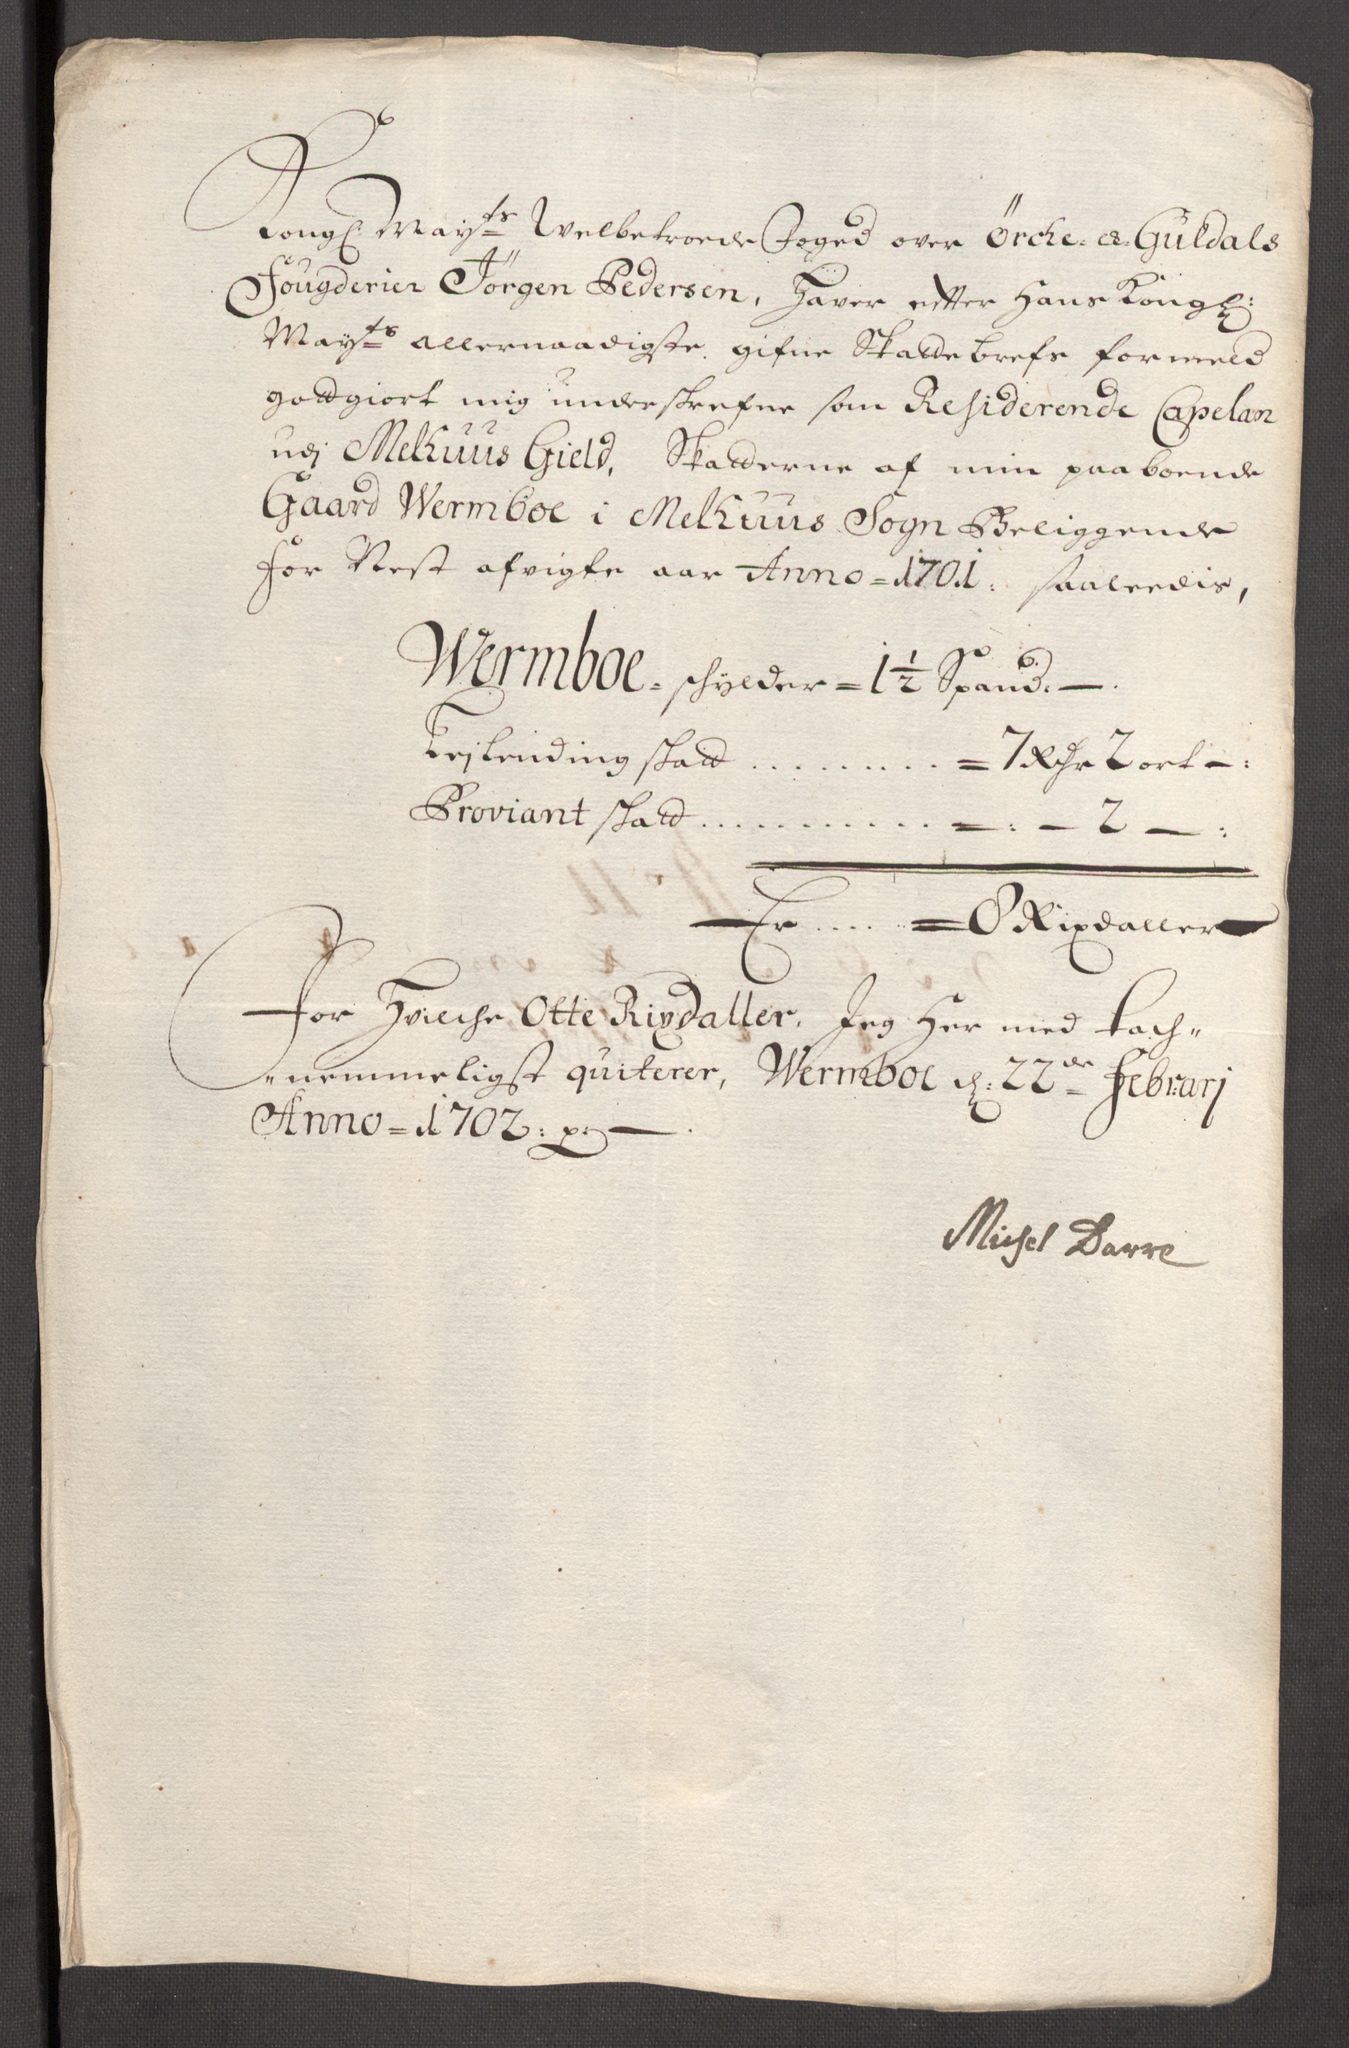 Kongl: May:ts Welbetroede Foged over Örche- & Guldals
Fougderier Jörgen Pedersen, Hafver efter Hans Kongl:
May:ts allernaadigste gifne Skattebrefs formeld
gottgiort mig underskrefne som Residerende Capelan
udj Melhuus Gield, Skatterne af min paaboende
Gaard Wermboe i Melhuus Sogn Beliggende
for Nest afvigte aar Anno = 1701: saaleedis,
Wermboe - schylder = 1½ Spand. —.
Leilending skatt ........ = 7 Rdr 2 ort —:
Proviant skatt ......... = : — 2 — :
Er ..... = 8 Rixdaller
For Hvilche Otte Rixdaller, Jeg Her med tach-
-nemmeligst quiterer, Wermboe d: 22de Febrarj
Anno = 1702: —.
Michel Darre